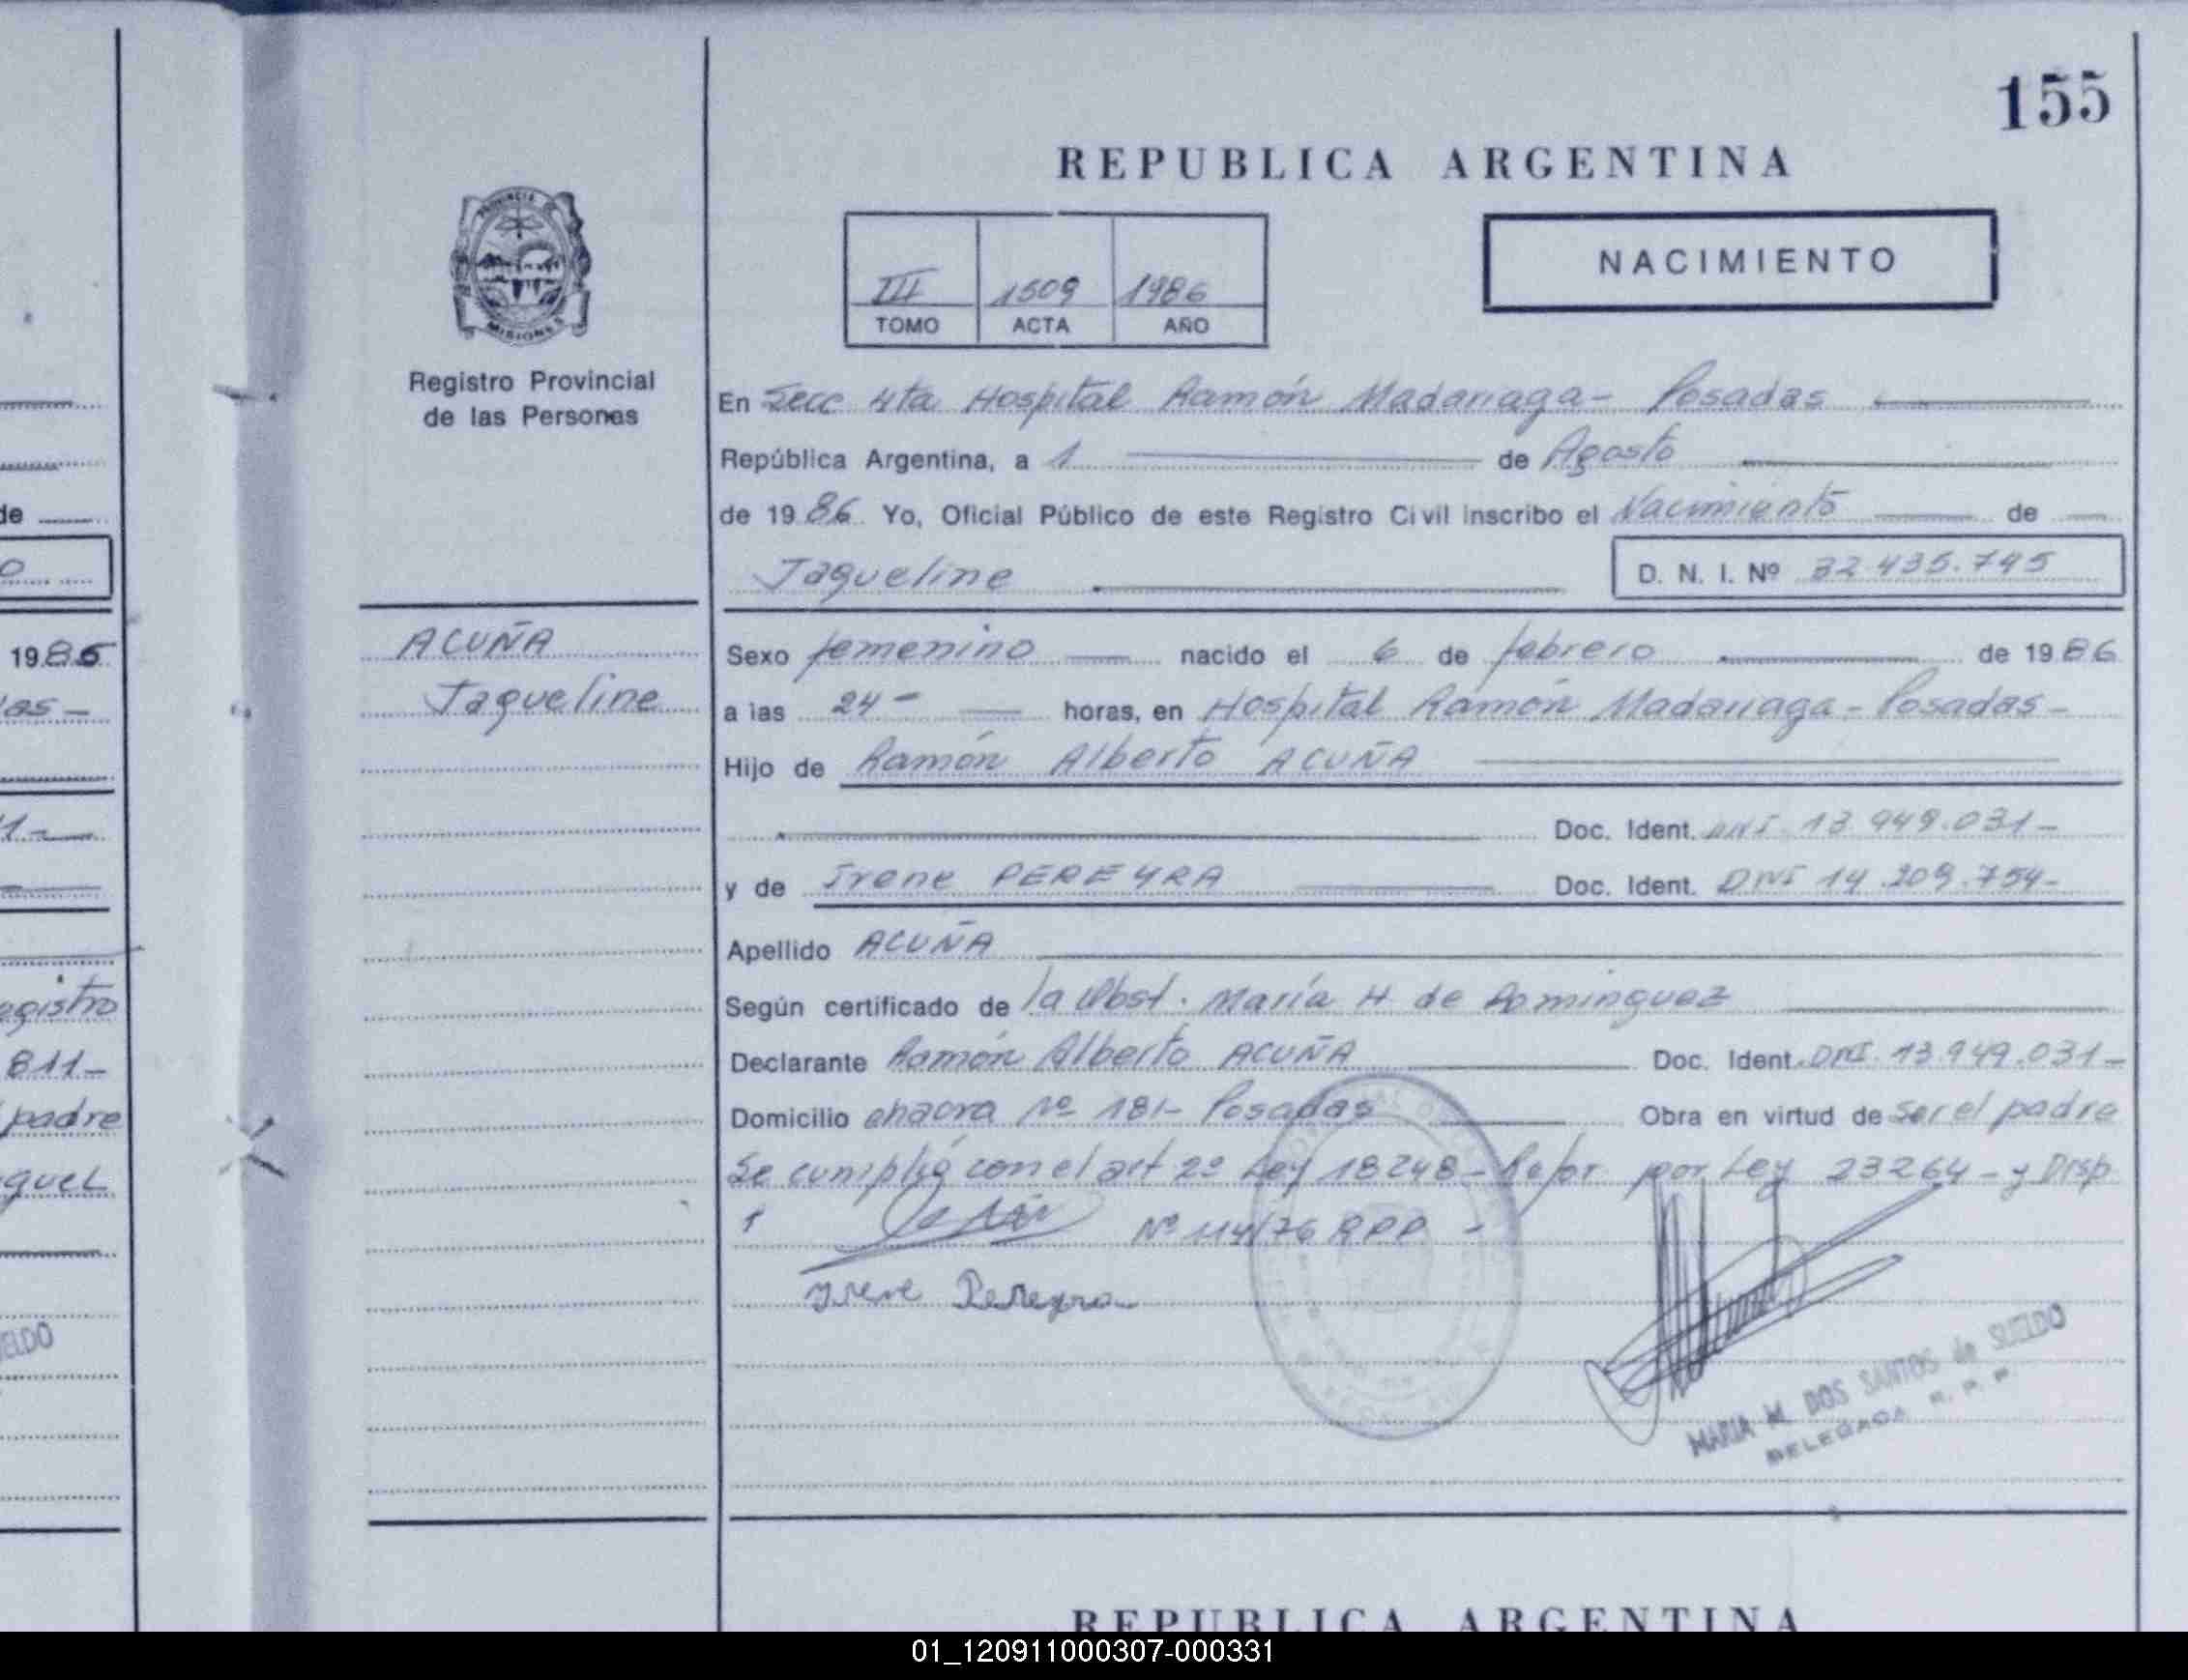 155
REPUBLICA ARGENTINA
NACIMIENTO
PROVINCIA DE
MISIONES
III 1509 1986
TOMO ACTA AÑO
Registro Provincial
de las Personas
En Secc 4ta Hospital Ramón Madariaga- Posadas
República Argentina, a 1 de Agosto
de 1986. Yo, Oficial Público de este Registro Civil inscribo el Nacimiento de
Jaqueline D. N. I. Nº 32.435.745
ACUÑA
Jaqueline
Sexo femenino nacido el 6 de febrero de 1986
a las 24- horas, en Hospital Ramón Madariaga-Posadas-
Hijo de Ramón Alberto ACUÑA
Doc. Ident. DNI 13.949.031-
y de Irene PEREYRA Doc. Ident. DNI 14.209.754-
Apellido ACUÑA
Según certificado de la Obst. María H. de Dominguez
Declarante Ramón Alberto ACUÑA Doc. Ident. DNI. 13.949.031-
Domicilio chacra Nº 181- Posadas Obra en virtud de ser el padre
Se cumplió con el art 2º Ley 18248- Refor. por Ley 23264- y Disp.
Nº 114/76 RPP -
Irene Pereyra
MARIA M. DOS SANTOS de SUELDO
DELEGADA R. P. P.
REPUBLICA ARGENTINA
de
1986
as-
1-
egistro
811-
padre
guel
ELDO
01_120911000307-000331